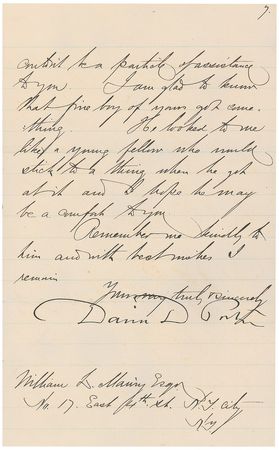 7.
couldn't be a particle of assistance
to you. I am glad to know
that fine boy of yours got some-
thing. He looked to me
like a young fellow who would
stick to a thing when he got
at it and I hope he may
be a comfort to you.
Remember me kindly to
him and with best wishes I
remain
Yours truly & sincerely
David D.
William L. Maury Esqr
No. 17. East St. N.Y. City
N.Y.